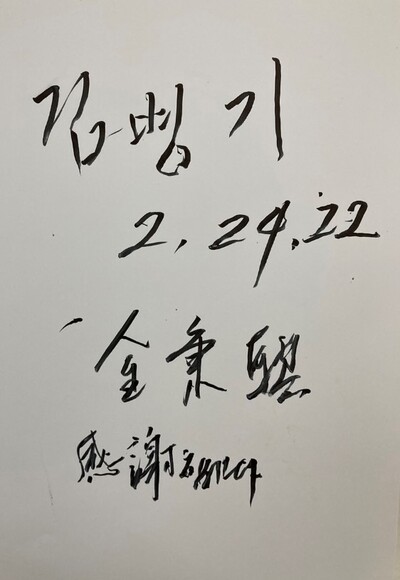 김병기
2, 24, '22
金秉騏
感謝합니다